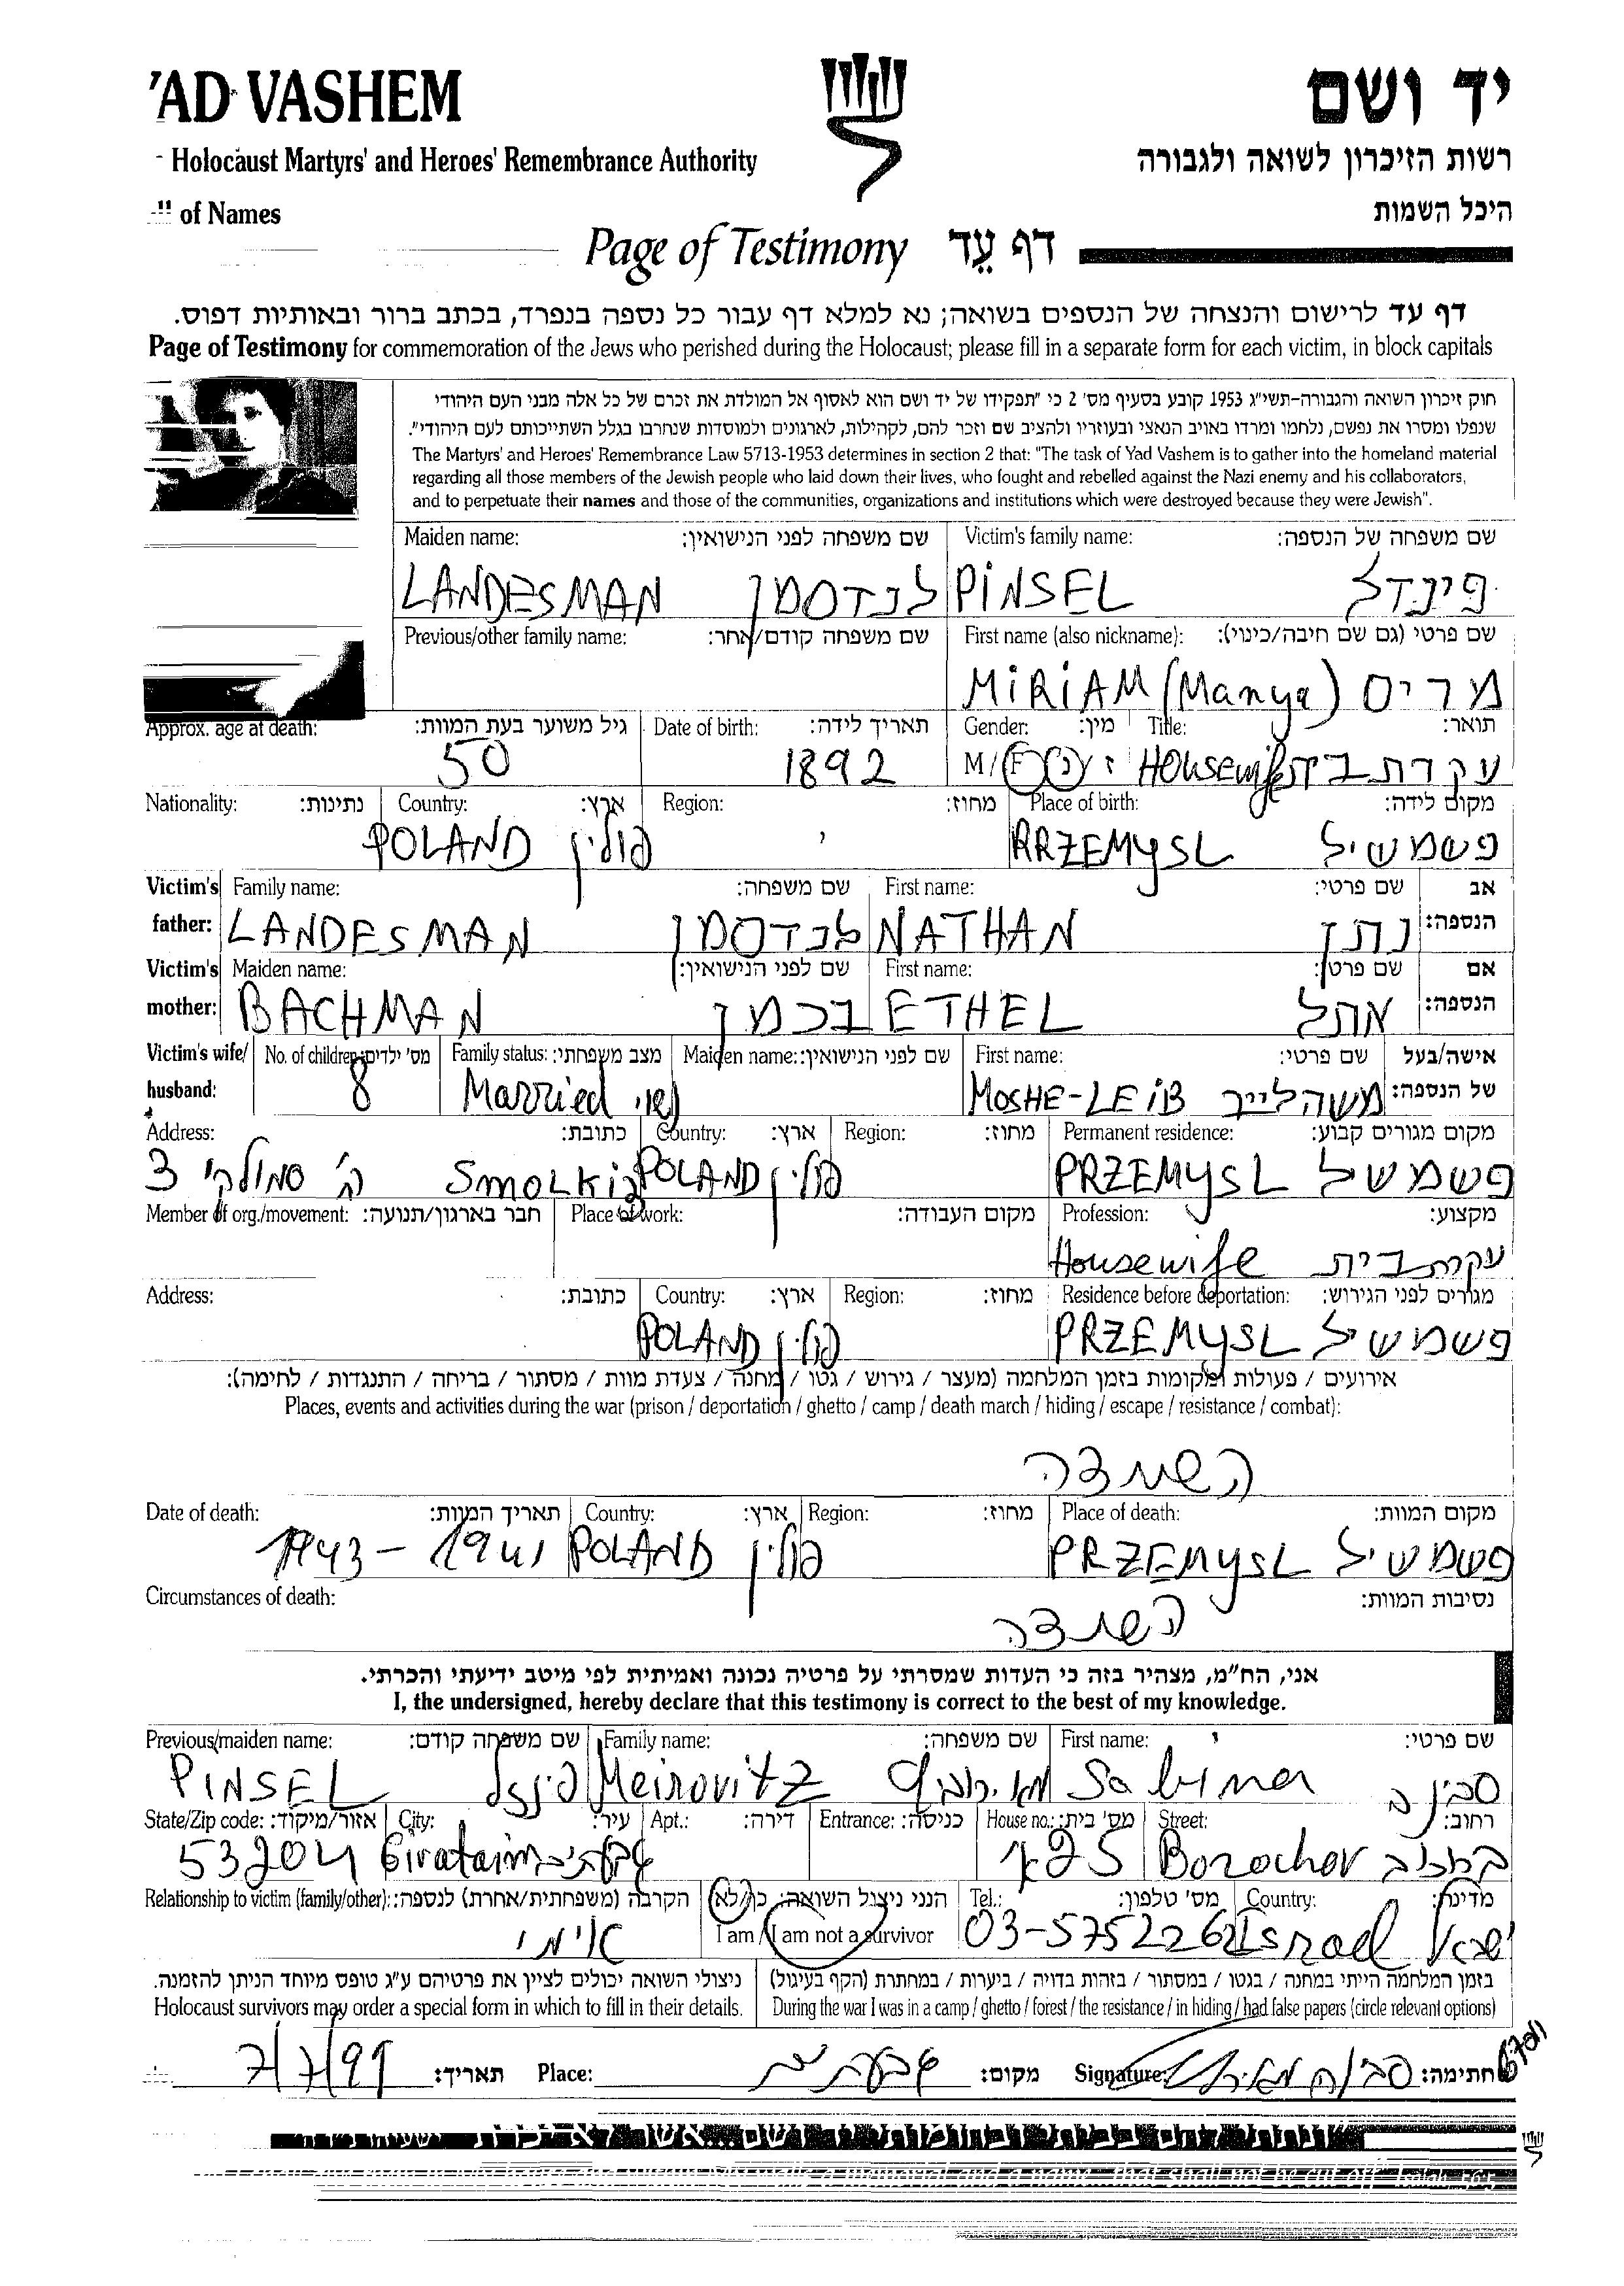 'AD VASHEM
יד ושם
Holocaust Martyrs' and Heroes' Remembrance Authority
רשות הזיכרון לשואה ולגבורה
of Names
היכל השמות
Page of Testimony דף עֵד
דף עד לרישום והנצחה של הנספים בשואה; נא למלא דף עבור כל נספה בנפרד, בכתב ברור ובאותיות דפוס.
Page of Testimony for commemoration of the Jews who perished during the Holocaust; please fill in a separate form for each victim, in block capitals
חוק זיכרון השואה והגבורה-תשי"ג 1953 קובע בסעיף מס' 2 כי "תפקידו של יד ושם הוא לאסוף אל המולדת את זכרם של כל אלה מבני העם היהודי
שנפלו ומסרו את נפשם, נלחמו ומרדו באויב הנאצי ובעוזריו ולהציב שם וזכר להם, לקהילות, לארגונים ולמוסדות שנחרבו בגלל השתייכותם לעם היהודי".
The Martyrs' and Heroes' Remembrance Law 5713-1953 determines in section 2 that: "The task of Yad Vashem is to gather into the homeland material
regarding all those members of the Jewish people who laid down their lives, who fought and rebelled against the Nazi enemy and his collaborators,
and to perpetuate their names and those of the communities, organizations and institutions which were destroyed because they were Jewish".
Maiden name: שם משפחה לפני הנישואין: Victim's family name: שם משפחה של הנספה:
LANDESMAN לנדסמן PINSEL פינדל
Previous/other family name: שם משפחה קודם/אחר: First name (also nickname): שם פרטי (גם שם חיבה/כינוי):
MIRIAM (Manya) מרים
Approx. age at death: גיל משוער בעת המוות: Date of birth: תאריך לידה: Gender: מין: Title: תואר:
50 1892 M / F ז / נ Housewife עקרת בית
Nationality: נתינות: Country: ארץ: Region: מחוז: Place of birth: מקום לידה:
POLAND פולין PRZEMYSL פשמשיל
Victim's father: Family name: שם משפחה: First name: שם פרטי: אב הנספה:
LANDESMAN לנדסמן NATHAN נתן
Victim's mother: Maiden name: שם לפני הנישואין: First name: שם פרטי: אם הנספה:
BACHMAN בכמן ETHEL אתל
Victim's wife/ husband: No. of children: מס' ילדים: Family status: מצב משפחתי: Maiden name: שם לפני הנישואין: First name: שם פרטי: אישה/בעל של הנספה:
8 Married נשוי MOSHE-LEIB משה לייב
Address: כתובת: Country: ארץ: Region: מחוז: Permanent residence: מקום מגורים קבוע:
3 סמולקי רח' Smolki POLAND פולין PRZEMYSL פשמשל
Member of org./movement: חבר בארגון/תנועה: Place of work: מקום העבודה: Profession: מקצוע:
Housewife עקרת בית
Address: כתובת: Country: ארץ: Region: מחוז: Residence before deportation: מגורים לפני הגירוש:
POLAND פולין PRZEMYSL פשמשיל
אירועים / פעולות ומקומות בזמן המלחמה (מעצר / גירוש / גטו / מחנה / צעדת מוות / מסתור / בריחה / התנגדות / לחימה):
Places, events and activities during the war (prison / deportation / ghetto / camp / death march / hiding / escape / resistance / combat):
השמדה
Date of death: תאריך המוות: Country: ארץ: Region: מחוז: Place of death: מקום המוות:
1943 - 1941 POLAND פולין PRZEMYSL פשמשיל
Circumstances of death: נסיבות המוות:
השמדה
אני, הח"מ, מצהיר בזה כי העדות שמסרתי על פרטיה נכונה ואמיתית לפי מיטב ידיעתי והכרתי.
I, the undersigned, hereby declare that this testimony is correct to the best of my knowledge.
Previous/maiden name: שם משפחה קודם: Family name: שם משפחה: First name: שם פרטי:
PINSEL פינזל Meirovitz מאירוביץ Sabina סבינה
State/Zip code: אזור/מיקוד: City: עיר: Apt.: דירה: Entrance: כניסה: House no.: מס' בית: Street: רחוב:
53204 Givataim גבעתיים 25א Borochov בורוכוב
Relationship to victim (family/other): הקרבה (משפחתית/אחרת) לנספה: הנני ניצול השואה: כן/לא Tel.: מס' טלפון: Country: מדינה:
אימי I am / I am not a survivor 03-5752262 Israel ישראל
בזמן המלחמה הייתי במחנה / בגטו / במסתור / בזהות בדויה / ביערות / במחתרת (הקף בעיגול) ניצולי השואה יכולים לציין את פרטיהם ע"ג טופס מיוחד הניתן להזמנה.
Holocaust survivors may order a special form in which to fill in their details. During the war I was in a camp / ghetto / forest / the resistance / in hiding / had false papers (circle relevant options)
7/7/99 תאריך: Place: גבעתיים מקום: Signature: סבינה מאירוביץ חתימה: